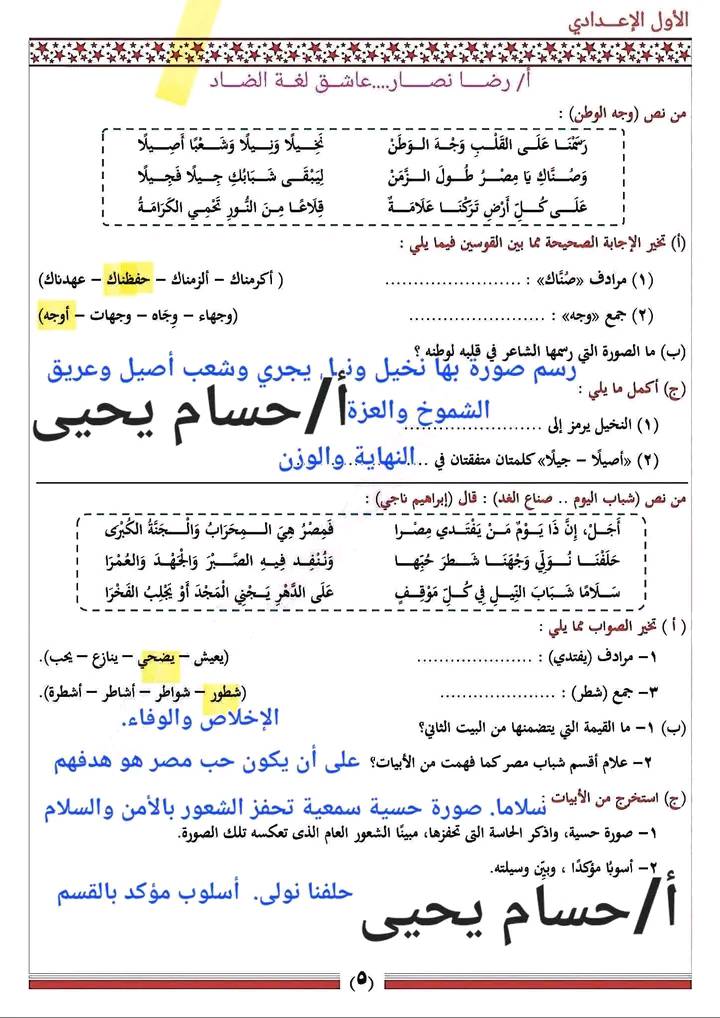 الأول الإعـــدادي
أ/ رضـــا نصـــار....عاشـــق لغـة الضـــاد
من نص (وجه الوطن) :
رَسَمْنَـا عَلَـى القَلْـبِ وَجْـهَ الـوَطَنْ نَخِـيلًا وَنِـيلًا وَشَـعْبًا أَصِـيلًا
وَصُـنَّاكِ يَا مِصْـرُ طُـولَ الـزَّمَنْ لِيَبْقَـى شَـبَابُكِ جِـيلًا فَجِـيلًا
عَلَـى كُـلِّ أَرْضٍ تَرَكْنَـا عَلَامَـةً قِلَاعًـا مِـنَ النُّـورِ تَحْمِـي الكَرَامَـةُ
(أ) تخير الإجابة الصحيحة مما بين القوسين فيما يلي :
(١) مرادف «صُنَّاك» : ........................ ( أكرمناك – ألزمناك – حفظناك – عهدناك)
(٢) جمع «وجه» : ........................ (وجهاء – وِجَاه – وجهات – أوجه)
(ب) ما الصورة التي رسمها الشاعر في قلبه لوطنه ؟
رسم صورة بها نخيل ونيل يجري وشعب أصيل وعريق
(ج) أكمل ما يلي :
أ/حسام يحيى
(١) النخيل يرمز إلى ........................ الشموخ والعزة
(٢) «أصيلًا – جيلًا» كلمتان متفقتان في ........................ النهاية والوزن
من نص (شباب اليوم .. صناع الغد) : قال (إبراهيم ناجي):
أَجَـلْ، إِنَّ ذَا يَـوْمٌ مَـنْ يَفْتَـدي مِصْـرا فَمِصْرُ هِيَ الـمِحْرَابُ وَالْـجَنَّةُ الكُبْرَى
حَلَفْنَـا نُـوَلِّي وَجْهَنَـا شَـطرَ حُبِّهـا وَنُـنْفِـد فِيـهِ الصَّبْـرَ وَالْجَهْـدَ وَالعُمْـرَا
سَـلَامًا شَـبَابَ النِّيـلِ فِي كُـلِّ مَوْقِـفٍ عَلَى الدَّهْرِ يَـجْنِي الْمَجْدَ أَوْ يَجْلِبُ الفَخْرَا
( أ ) تخير الصواب مما يلي :
١- مرادف (يفتدي) : .................... (يعيش – يضحي – ينازع – يحب).
٣- جمع (شطر) : .................... (شطور – شواطر – أشاطر – أشطرة).
(ب) ١- ما القيمة التي يتضمنها من البيت الثاني؟ الإخلاص والوفاء.
٢- علام أقسم شباب مصر كما فهمت من الأبيات؟ على أن يكون حب مصر هو هدفهم
(ج) استخرج من الأبيات :
سلاما. صورة حسية سمعية تحفز الشعور بالأمن والسلام
١- صورة حسية، واذكر الحاسة التى تحفزها، مبينًا الشعور العام الذى تعكسه تلك الصورة.
٢- أسوبًا مؤكدًا ، وبيِّن وسيلته.
حلفنا نولى. أسلوب مؤكد بالقسم
أ/حسام يحيى
(٥)